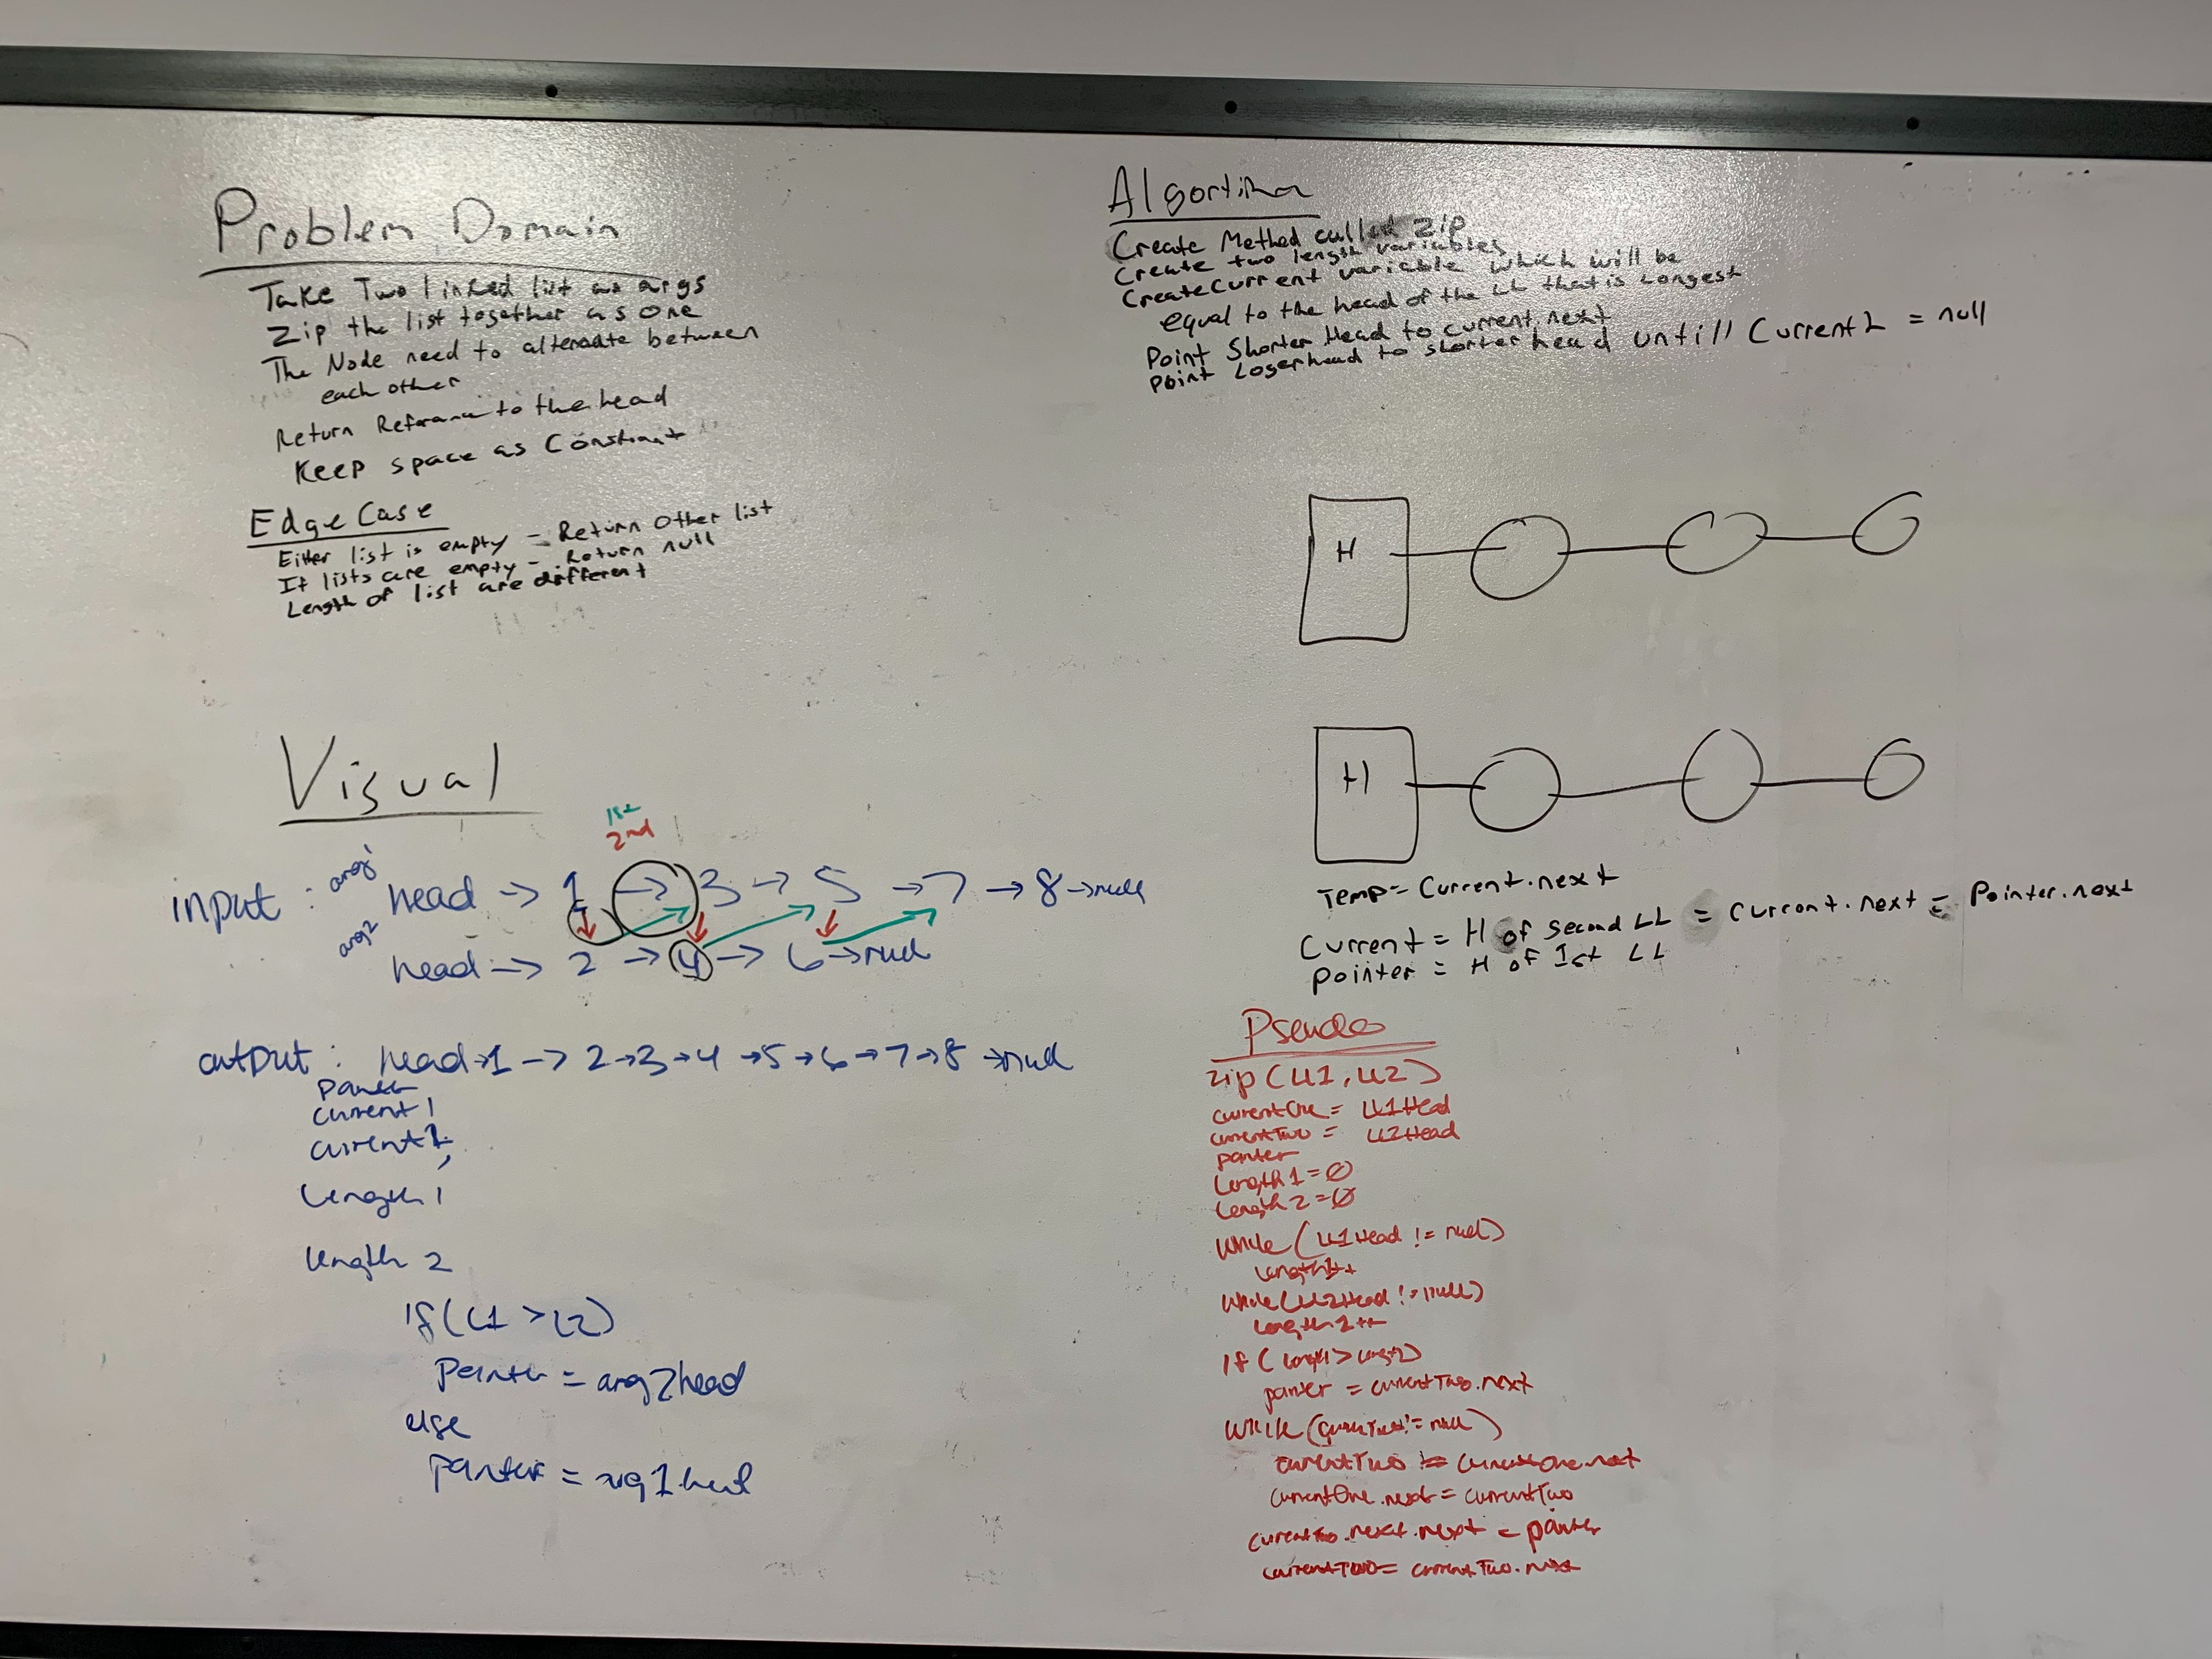 Problem Domain
Take Two linked list as args
Zip the list together as one
The Node need to alternate between
each other
Return Reference to the head
Keep space as Constant
Edge Case
Either list is empty - Return Other list
If lists are empty - Return null
Length of list are different
Visual
1st
2nd
input : arg1 head -> 1 -> 3 -> 5 -> 7 -> 8 -> null
arg2 head -> 2 -> 4 -> 6 -> null
output : head -> 1 -> 2 -> 3 -> 4 -> 5 -> 6 -> 7 -> 8 -> null
pointer
current 1
current
length 1
length 2
if (L1 > L2)
pointer = arg2head
else
pointer = arg1.head
Algorithm
Create Method called zip
Create two length variables
Create Current variable which will be
equal to the head of the LL that is Longest
Point Shorter Head to current.next
Point Logerhead to shorter head untill Current2 = null
H
H
Temp = Current.next
Current = H of second LL = Current.next = Pointer.next
Pointer = H of 1st LL
Pseudo
zip (LL1, LL2)
currentOne = LL1Head
currentTwo = LL2Head
pointer
length1 = 0
length2 = 0
while (LL1Head != null)
length1++
while (LL2Head != null)
length2++
if (length1 > length2)
pointer = currentTwo.next
while (currentTwo != null)
currentTwo = currentOne.next
currentOne.next = currentTwo
currentTwo.next.next = pointer
currentTwo = currentTwo.next